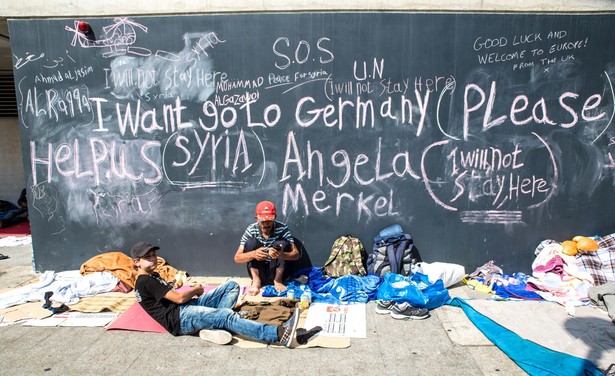 S.O.S
Peace For Syria
GOOD LUCK AND
WELCOME TO EUROPE!
FROM THE UK
x
Ahmad Al Jasim
I will not stay Here
Syria
MOHAMMAD
U.N
(I will not stay Here
AL Raqqa
I Want go to Germany (Please)
HELP US (SYRIA) Angela
Merkel
(I will not
Stay, Here)